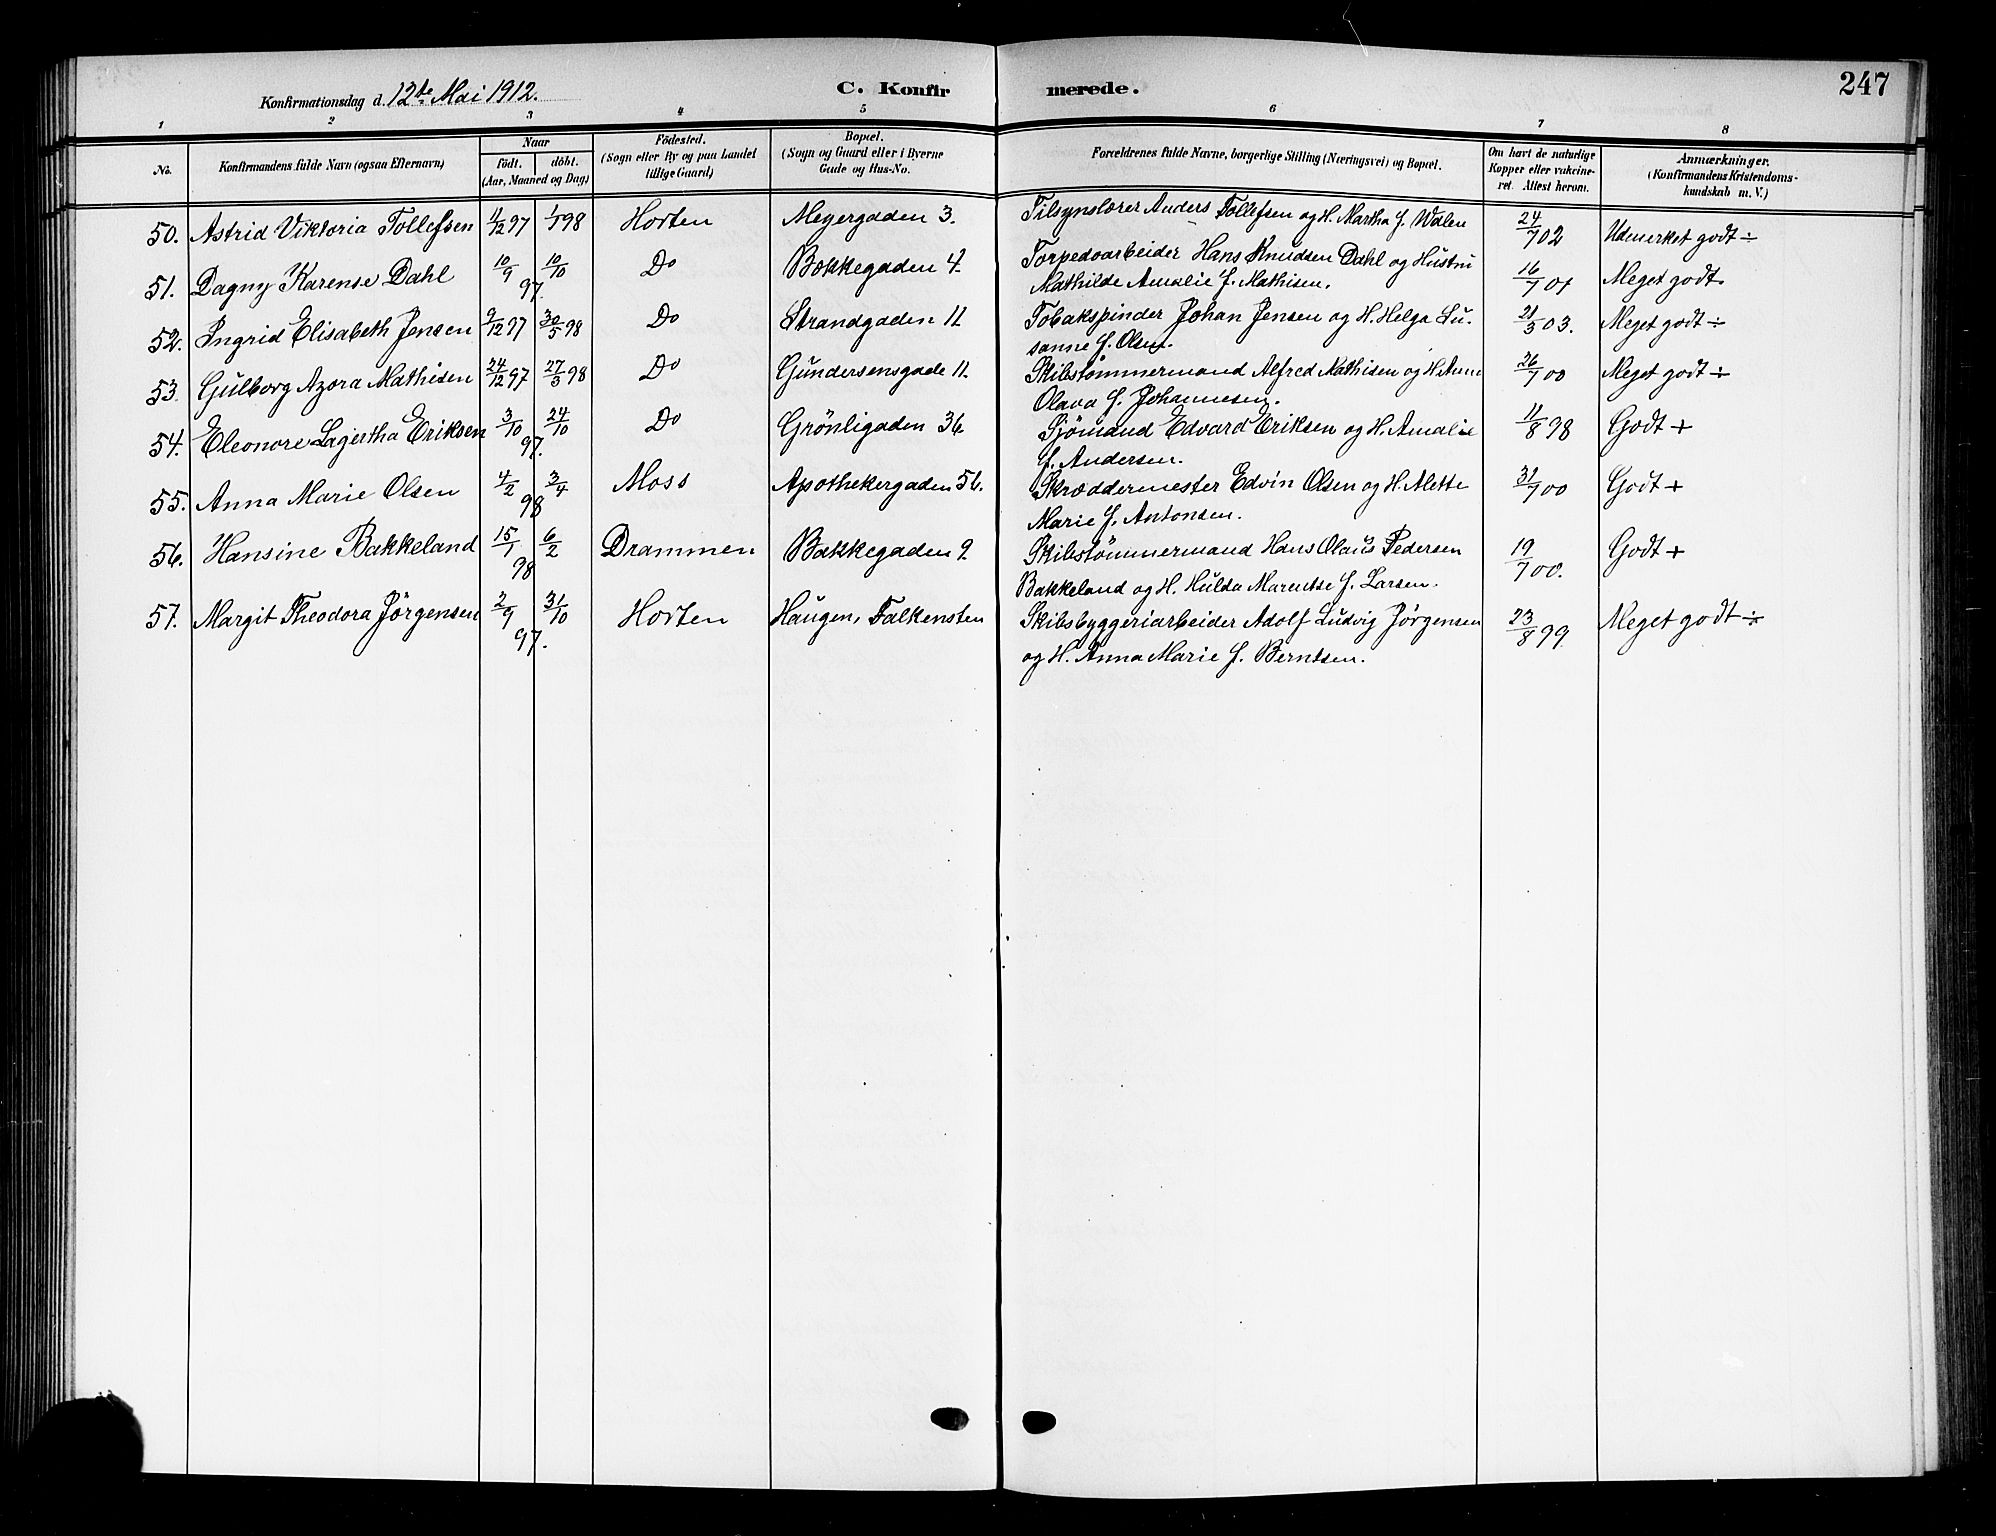 Konfirmationsdag d. 12te Mai 1912. C. Konfirmerede. 247
1 2 3 4 5 6 7 8
No. Konfirmandens fulde Navn (ogsaa Efternavn) Naar födt. döbt. (Aar, Maaned og Dag) Födested. (Sogn eller By og paa Landet tillige Gaard) Bopæl. (Sogn og Gaard eller i Byerne Gade og Hus-No. Forældrenes fulde Navne, borgerlige Stilling (Næringsvei) og Bopæl. Om havt de naturlige Kopper eller vakcineret. Attest herom. Anmærkninger. (Konfirmandens Kristendomskundskab m. V.)
50. Astrid Viktoria Tollefsen 11/12 97 1/7 98 Horten Meyergaden 3. Tilsynslærer Anders Tollefsen og H. Martha f. Walen 24/7 02 Udmerket godt ÷
51. Dagny Karense Dahl 10/9 10/10 97. Do Bakkegaden 4. Torpedoarbeider Hans Knudsen Dahl og Hustru
Mathilde Amalie f. Mathisen. 16/7 01 Meget godt.
52. Ingrid Elisabeth Jensen 9/12 97 30/5 98 Do Strandgaden 11 Tobakspinder Johan Jensen og H. Helga Su-
sanne f. Olsen. 21/5 03. Meget godt ÷
53. Gulborg Azora Mathisen 24/12 97 27/3 98 Do Gundersensgade 11. Skibstømmermand Alfred Mathisen og H. Anna
Olava f. Johannesen. 26/7 00 Meget godt ÷
54. Eleonore Lagertha Eriksen 3/10 24/10 97. Do Grönligaden 36 Sjömand Edvard Eriksen og H. Amalie
f. Andersen. 11/8 98 Godt +
55. Anna Marie Olsen 4/2 3/4 98 Moss Apothekergaden 56. Skræddermester Edvin Olsen og H. Alette
Marie f. Antonsen. 31/7 00 Godt +
56. Hansine Bakkeland 15/1 6/2 98 Drammen Bakkegaden 9 Skibstømmermand Hans Olaus Pedersen
Bakkeland og H. Hulda Marentse f. Larsen. 19/7 00. Godt +
57. Margit Theodora Jörgensen 2/9 31/10 97. Horten Haugen, Falkensten Skibsbyggeriarbeider Adolf Ludvig Jørgensen
og H. Anna Marie f. Berntsen. 23/8 99. Meget godt ÷